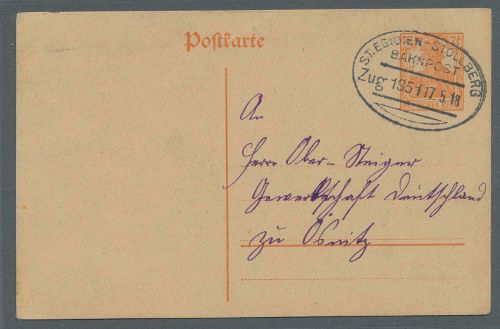 Postkarte
ST. EGIDIEN-STOLLBERG
BAHNPOST
Zug 1951 17 5 18
An
Herrn Ober-Steiger
Gewerkschaft Deutschland
zu Ösnitz